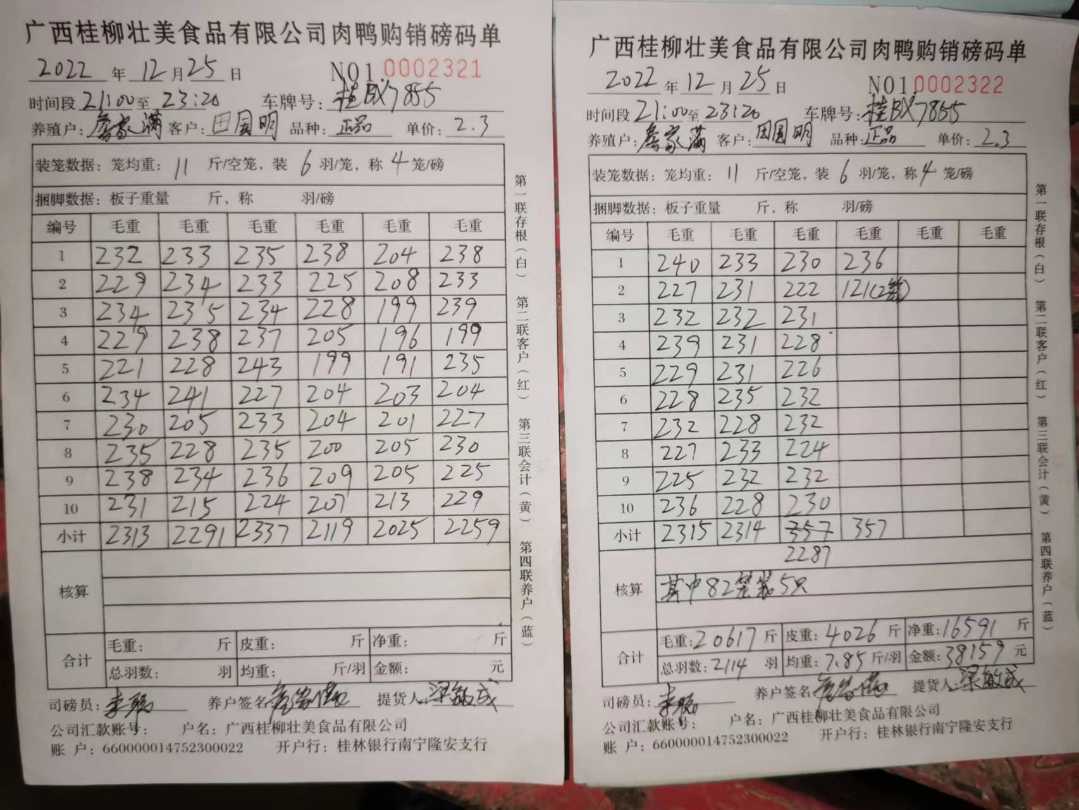 广西桂柳壮美食品有限公司肉鸭购销磅码单
2022 年 12 月 25 日 NO1 0002321
时间段 21:00 至 23:20 车牌号: 桂BX7855
养殖户: 廖家满 客户: 田国明 品种: 正品 单价: 2.3
装笼数据: 笼均重: 11 斤/空笼, 装 6 羽/笼, 称 4 笼/磅
捆脚数据: 板子重量 斤, 称 羽/磅
编号 毛重 毛重 毛重 毛重 毛重 毛重
1 232 233 235 238 204 238
2 229 234 233 225 208 233
3 234 235 234 228 199 239
4 229 238 237 205 196 199
5 221 228 243 199 191 235
6 234 241 227 204 203 204
7 230 205 233 204 201 227
8 235 228 235 200 205 230
9 238 234 236 209 205 225
10 231 215 224 207 213 229
小计 2313 2291 2337 2119 2025 2259
核算
合计 毛重: 斤 皮重: 斤 净重: 斤
总羽数: 羽 均重: 斤/羽 金额: 元
司磅员: 养户签名: 提货人: 梁敏成
公司汇款账号: 户名: 广西桂柳壮美食品有限公司
账 户: 660000014752300022 开户行: 桂林银行南宁隆安支行
第一联存根(白) 第二联客户(红) 第三联会计(黄) 第四联养户(蓝)
广西桂柳壮美食品有限公司肉鸭购销磅码单
2022 年 12 月 25 日 NO1 0002322
时间段 21:00 至 23:20 车牌号: 桂BX7855
养殖户: 廖家满 客户: 田国明 品种: 正品 单价: 2.3
装笼数据: 笼均重: 11 斤/空笼, 装 6 羽/笼, 称 4 笼/磅
捆脚数据: 板子重量 斤, 称 羽/磅
编号 毛重 毛重 毛重 毛重 毛重 毛重
1 240 233 230 236
2 227 231 222 121(2笼)
3 232 232 231
4 239 231 228
5 229 231 226
6 228 235 232
7 232 228 232
8 227 233 224
9 225 232 232
10 236 228 230
小计 2315 2314 357 357
2287
核算 其中82笼装5只
合计 毛重: 20617 斤 皮重: 4026 斤 净重: 16591 斤
总羽数: 2114 羽 均重: 7.85 斤/羽 金额: 38159 元
司磅员: 养户签名: 提货人: 梁敏成
公司汇款账号: 户名: 广西桂柳壮美食品有限公司
账 户: 660000014752300022 开户行: 桂林银行南宁隆安支行
第一联存根(白) 第二联客户(红) 第三联会计(黄) 第四联养户(蓝)